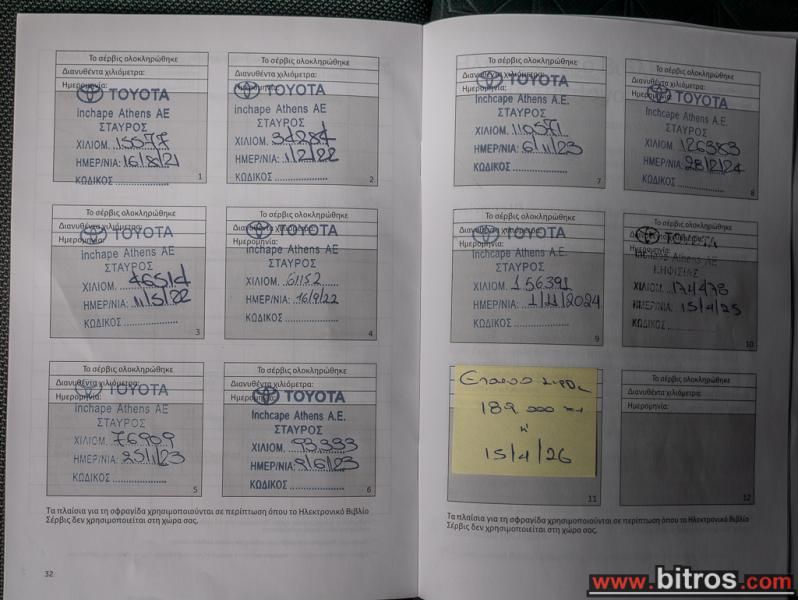 Το σέρβις ολοκληρώθηκε
Διανυθέντα χιλιόμετρα:
Ημερομηνία:
TOYOTA
Inchape Athens AE
ΣΤΑΥΡΟΣ
ΧΙΛΙΟΜ. 15577
ΗΜΕΡ/ΝΙΑ: 16/8/21
ΚΩΔΙΚΟΣ
1
Το σέρβις ολοκληρώθηκε
Διανυθέντα χιλιόμετρα:
Ημερομηνία:
TOYOTA
Inchape Athens AE
ΣΤΑΥΡΟΣ
ΧΙΛΙΟΜ. 34284
ΗΜΕΡ/ΝΙΑ: 1/2/22
ΚΩΔΙΚΟΣ
2
Το σέρβις ολοκληρώθηκε
Διανυθέντα χιλιόμετρα:
Ημερομηνία:
TOYOTA
Inchape Athens AE
ΣΤΑΥΡΟΣ
ΧΙΛΙΟΜ. 46514
ΗΜΕΡ/ΝΙΑ: 11/5/22
ΚΩΔΙΚΟΣ
3
Το σέρβις ολοκληρώθηκε
Διανυθέντα χιλιόμετρα:
Ημερομηνία:
TOYOTA
Inchape Athens AE
ΣΤΑΥΡΟΣ
ΧΙΛΙΟΜ. 61152
ΗΜΕΡ/ΝΙΑ: 16/9/22
ΚΩΔΙΚΟΣ
4
Το σέρβις ολοκληρώθηκε
Διανυθέντα χιλιόμετρα:
Ημερομηνία:
TOYOTA
Inchcape Athens AE
ΣΤΑΥΡΟΣ
ΧΙΛΙΟΜ. 76909
ΗΜΕΡ/ΝΙΑ: 25/1/23
ΚΩΔΙΚΟΣ
5
Το σέρβις ολοκληρώθηκε
Διανυθέντα χιλιόμετρα:
Ημερομηνία:
TOYOTA
Inchcape Athens A.E.
ΣΤΑΥΡΟΣ
ΧΙΛΙΟΜ. 93.333
ΗΜΕΡ/ΝΙΑ: /6/23
ΚΩΔΙΚΟΣ
6
Τα πλαίσια για τη σφραγίδα χρησιμοποιούνται σε περίπτωση όπου το Ηλεκτρονικό Βιβλίο
Σέρβις δεν χρησιμοποιείται στη χώρα σας.
32
Το σέρβις ολοκληρώθηκε
Διανυθέντα χιλιόμετρα:
Ημερομηνία:
TOYOTA
Inchcape Athens A.E.
ΣΤΑΥΡΟΣ
ΧΙΛΙΟΜ. 110571
ΗΜΕΡ/ΝΙΑ: 6/11/23
ΚΩΔΙΚΟΣ
7
Το σέρβις ολοκληρώθηκε
Διανυθέντα χιλιόμετρα:
Ημερομηνία:
TOYOTA
Inchcape Athens A.E.
ΣΤΑΥΡΟΣ
ΧΙΛΙΟΜ. 126383
ΗΜΕΡ/ΝΙΑ: 28/2/24
ΚΩΔΙΚΟΣ
8
Το σέρβις ολοκληρώθηκε
Διανυθέντα χιλιόμετρα:
Ημερομηνία:
TOYOTA
Inchcape Athens A.E.
ΣΤΑΥΡΟΣ
ΧΙΛΙΟΜ. 156391
ΗΜΕΡ/ΝΙΑ: 1/11/2024
ΚΩΔΙΚΟΣ
9
Το σέρβις ολοκληρώθηκε
Διανυθέντα χιλιόμετρα:
Ημερομηνία:
TOYOTA
Inchcape Athens AE
ΚΗΦΙΣΙΑΣ
ΧΙΛΙΟΜ. 174478
ΗΜΕΡ/ΝΙΑ: 15/4/25
ΚΩΔΙΚΟΣ
10
189.000
ή
15/4/26
11
Το σέρβις ολοκληρώθηκε
Διανυθέντα χιλιόμετρα:
Ημερομηνία:
12
Τα πλαίσια για τη σφραγίδα χρησιμοποιούνται σε περίπτωση όπου το Ηλεκτρονικό Βιβλίο
Σέρβις δεν χρησιμοποιείται στη χώρα σας.
www.bitros.com